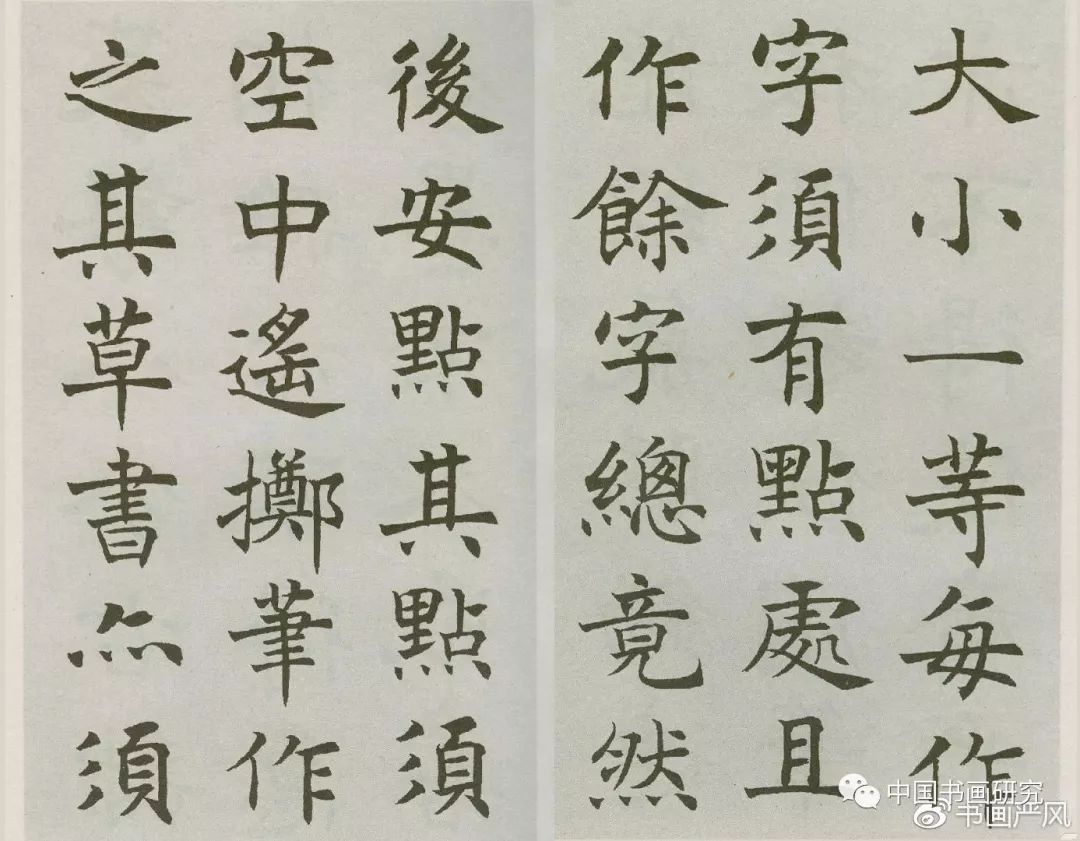 大小一等每作
字須有點處且
作餘字總竟然
後安點其點須
空中遙擲筆作
之其草書亦須
中国书画研究
书画严风